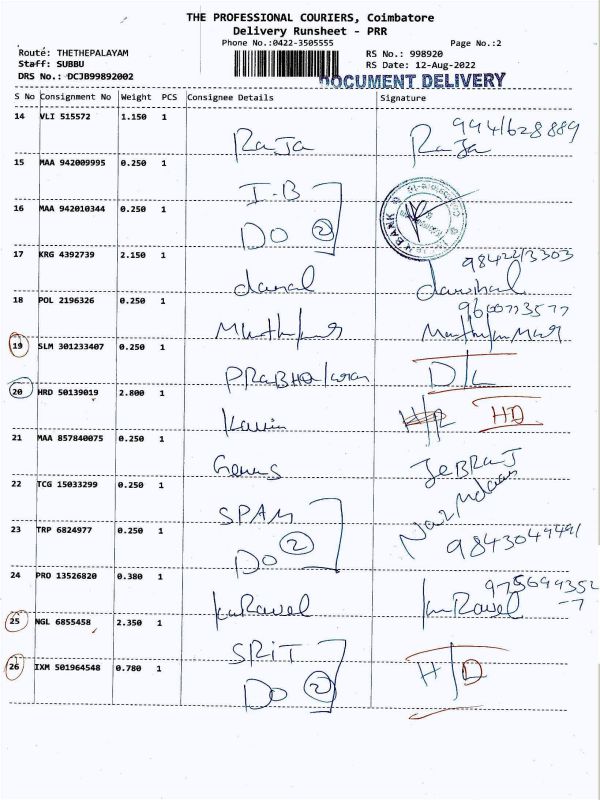 THE PROFESSIONAL COURIERS, Coimbatore
Delivery Runsheet - PRR
Phone No.:0422-3505555 Page No.:2
Route: THETHEPALAYAM RS No.: 998920
Staff: SUBBU RS Date: 12-Aug-2022
DRS No.: DCJB99892002 DOCUMENT DELIVERY
S No Consignment No Weight PCS Consignee Details Signature
14 VLI 515572 1.150 1 Raja Raja 9941628889
15 MAA 942009995 0.250 1 I-B
16 MAA 942010344 0.250 1 DO 2 BANK
17 KRG 4392739 2.150 1
18 POL 2196326 0.250 1
19 SLM 301233407 0.250 1 PRABHAkaran D/L
20 HRD 50139019 2.800 1 Kavin HD
21 MAA 857840075 0.250 1 JEBRAJ
22 TCG 15033299 0.250 1 SPAM
23 TRP 6824977 0.250 1 DO 2 9843049491
24 PRO 13526820 0.380 1
25 NGL 6855458 2.350 1 SRiT
26 IXM 501964548 0.780 1 DO 2 H/D